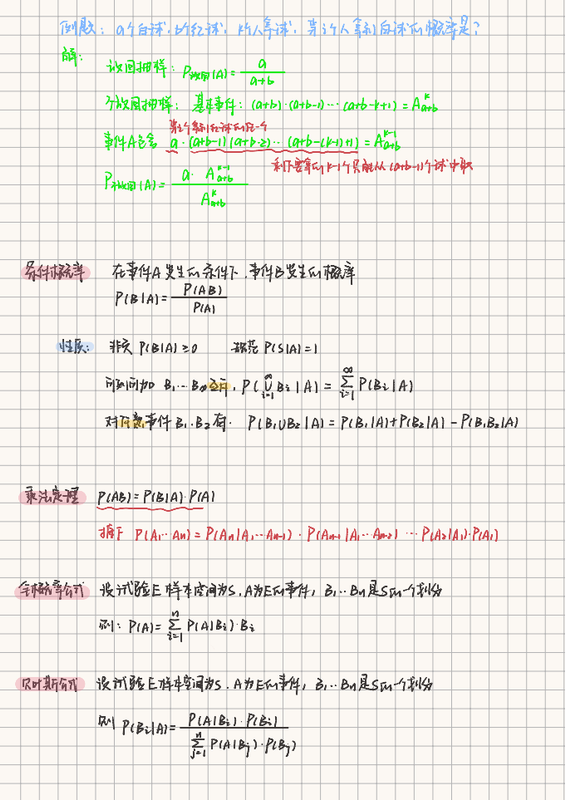 例题: a个白球, b个红球, k个人拿球, 第i个人拿到白球的概率是?
解: 放回抽样: P放回(A)= a/(a+b)
不放回抽样: 基本事件: (a+b)·(a+b-1)···(a+b-k+1) = A_{a+b}^{k}
第i个拿到红球的任一个
事件A包含 a·(a+b-1)(a+b-2)···(a+b-(k-1)+1) = A_{a+b}^{k-1}
剩下要拿的k-1个只能从(a+b-1)个球中取
P不放回(A) = a·A_{a+b}^{k-1} / A_{a+b}^{k}
条件概率 在事件A发生的条件下, 事件B发生的概率
P(B|A) = P(AB)/P(A)
性质: 非负 P(B|A)≥0 规范 P(S|A)=1
可列可加 B₁···B∞互斥, P(⋃_{i=1}^{∞} Bi|A) = ∑_{i=1}^{∞} P(Bi|A)
对任意事件B₁.B₂有. P(B₁∪B₂|A) = P(B₁|A)+P(B₂|A)-P(B₁B₂|A)
乘法定理 P(AB)=P(B|A)·P(A)
推广 P(A₁···An) = P(An|A₁···An-1)·P(An-1|A₁···An-2)···P(A₂|A₁)·P(A₁)
全概率公式 设试验E样本空间为S, A为E的事件, B₁···Bn是S的一个划分
则: P(A)= ∑_{i=1}^{n} P(A|Bi)·Bi
贝叶斯公式 设试验E样本空间为S. A为E的事件, B₁···Bn是S的一个划分
则 P(Bi|A)= P(A|Bi)·P(Bi) / ∑_{j=1}^{n} P(A|Bj)·P(Bj)